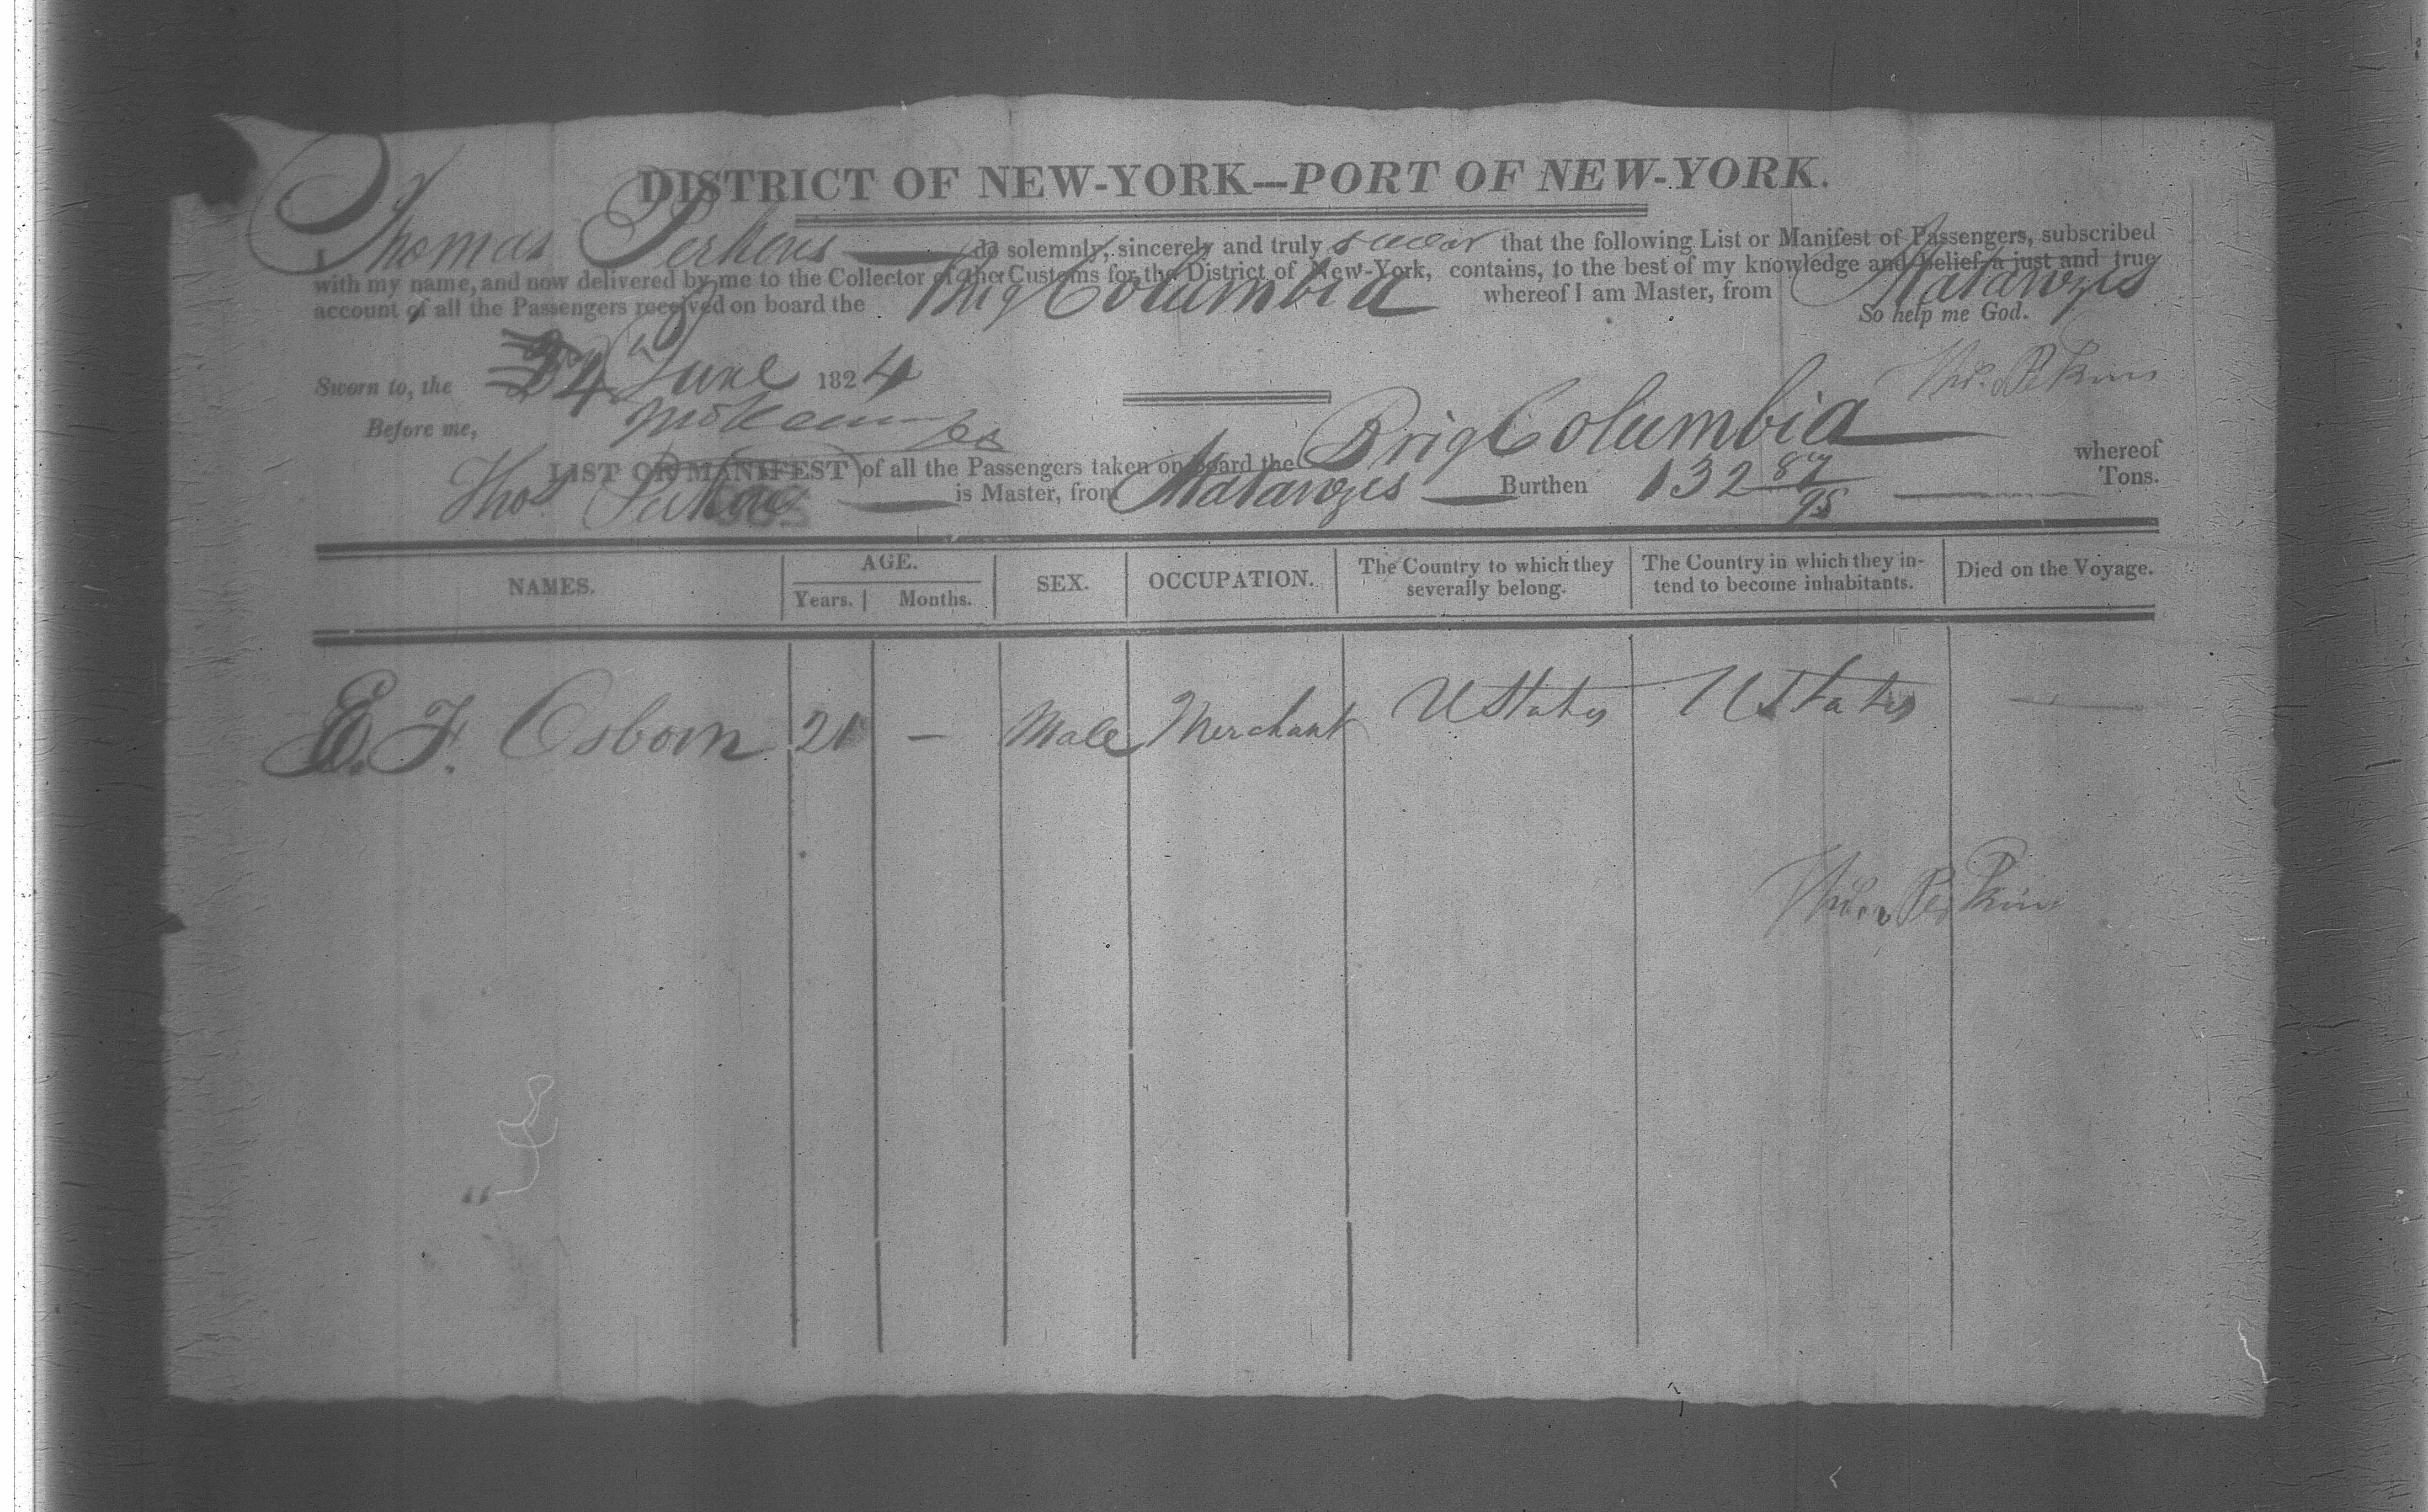 DISTRICT OF NEW-YORK—PORT OF NEW-YORK.
I Thomas Perkins do solemnly, sincerely and truly swear that the following List or Manifest of Passengers, subscribed
with my name, and now delivered by me to the Collector of the Customs for the District of New-York, contains, to the best of my knowledge and belief a just and true
account of all the Passengers received on board the Brig Columbia whereof I am Master, from Matanzes
So help me God.
Sworn to, the 24 June 1824 Thos. Perkins
Before me,
LIST OR MANIFEST of all the Passengers taken on board the Brig Columbia whereof
Thos Perkins is Master, from Matanzes Burthen 132 87/95 Tons.
NAMES. AGE. Years. Months. SEX. OCCUPATION. The Country to which they severally belong. The Country in which they intend to become inhabitants. Died on the Voyage.
E. F. Osborn 21 — Male Merchant U States U States —
Thos. Perkins